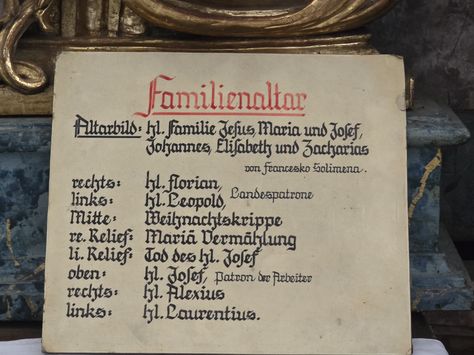 Familienaltar
Altarbild: hl. Familie Jesus, Maria und Josef,
Johannes, Elisabeth und Zacharias
von Francesko Solimena.
rechts: hl. Florian,
links: hl. Leopold, Landespatrone
Mitte: Weihnachtskrippe
re. Relief: Mariä Vermählung
li. Relief: Tod des hl. Josef
oben: hl. Josef, Patron der Arbeiter
rechts: hl. Alexius
links: hl. Laurentius.